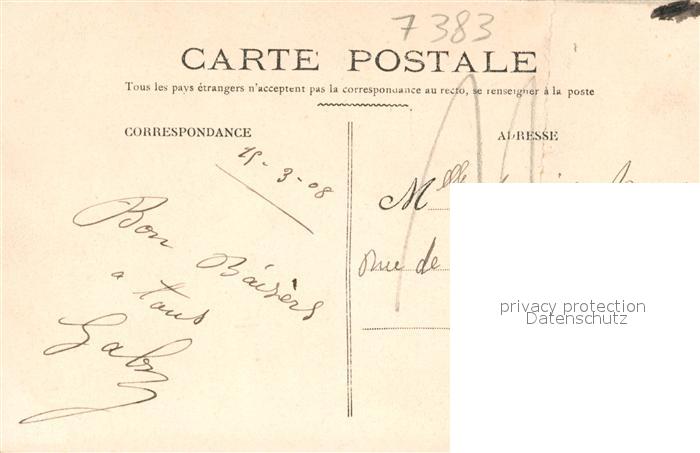 7383
CARTE POSTALE
Tous les pays étrangers n'acceptent pas la correspondance au recto, se renseigner à la poste
CORRESPONDANCE
ADRESSE
25-3-08
Mlle
Rue de
Bon Baisers
a tous
Gaby
privacy protection
Datenschutz